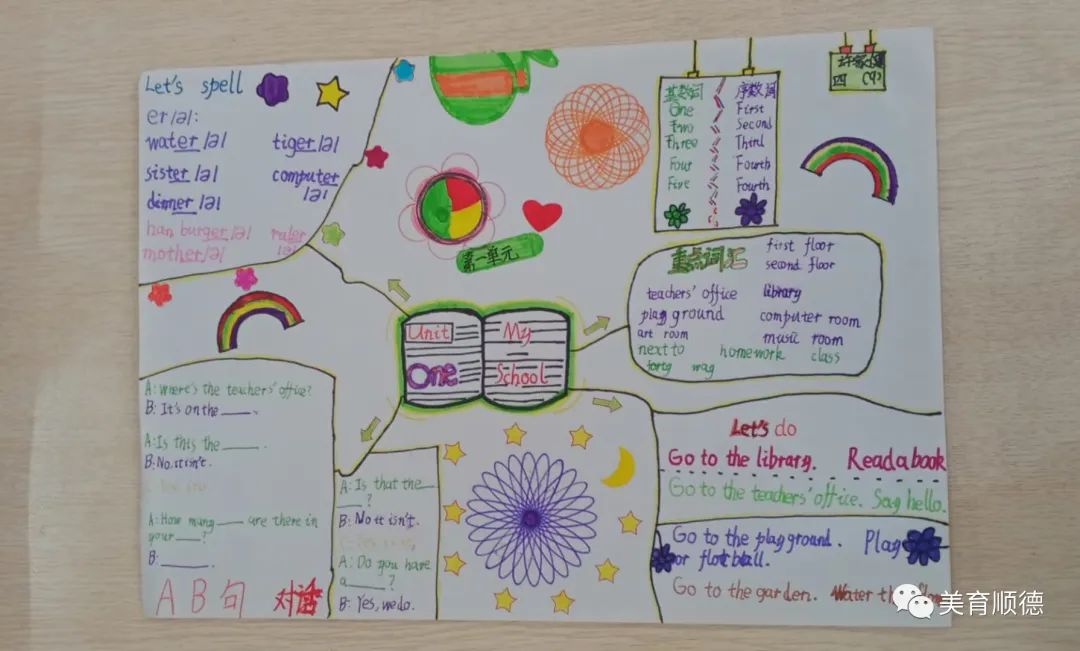 Let's spell
er/əl:
water/ə/
tiger/ə/
sister/ə/
computer
/ə/
dinner/ə/
han burger/ə/
ruler
/ə/
mother/ə/
第一单元
基数词 序数词
One First
Two Second
Three Third
Four Fourth
Five Fourth
四
Unit
One
My
School
重点词汇
first floor
second floor
teachers' office library
play ground computer room
art room music room
next to homework class
forty way
A: Where's the teachers' office?
B: It's on the ____.
A: Is this the ____.
B: No, it isn't.
A: How many ____ are there in
your ____?
B: ____.
A B 句 对话
A: Is that the
____?
B: No it isn't.
A: Do you have
a ____?
B: Yes, we do.
Let's do
Go to the library. Read a book
Go to the teachers' office. Say hello.
Go to the playground. Play
Go to the garden. Water the
美育顺德